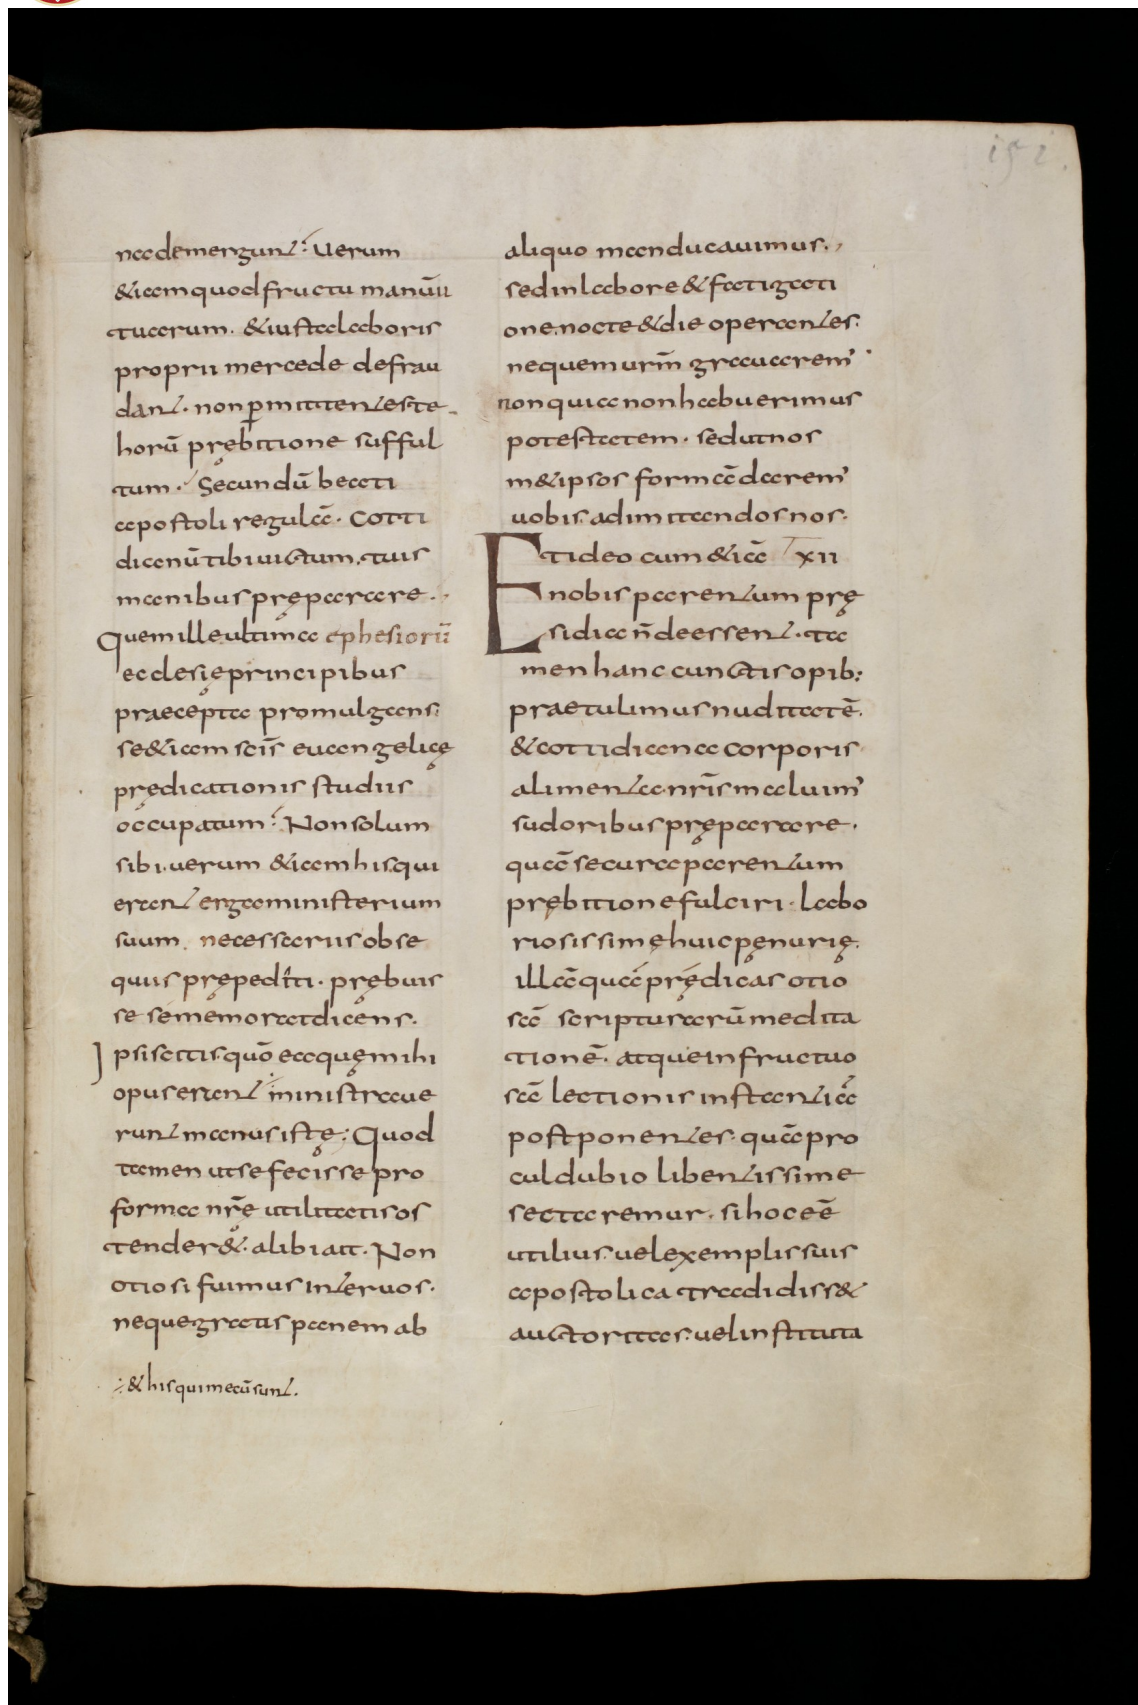 151.
na demergunt: Uerum
&iam quod fructu manuū
tuarum. &iusta laboris
proprii mercede defrau
dant. non p̄mittentes te
horū prębitione sufful
tum. Secundū beati
apostoli regulā. Cotti
dianū tibi uictum. tuis
manibus pręparare.
Quem ille ultima ephesiorū
ecclesię principibus
praecepta promulgans.
se &iam scīs euangelicę
prędicationis studiis
occupatum: Non solum
sibi. uerum &iam his qui
erant erga ministerium
suum. necessariis obse
quiis prępediti. prębuis
se se memorat dicens.
Ipsi scitis quō ea quę mihi
opus erant ministraue
runt manus istę: Quod
tamen ut se fecisse pro
forma nr̄ę utilitatis os
tender&. alibi ait. Non
otiosi fuimus inter uos.
neque gratis panem ab
& his qui mecū sunt.
aliquo manducauimus.
sed in labore & fatigati
one. nocte & die operantes.
ne quem ur̄m grauarem'
non quia non habuerimus
potestatem. sed ut nos
m&ipsos formā darem'
uobis. ad imitandos nos.
Et ideo cum &iā XII
nobis parentum prę
sidia n̄ deessent. ta
men hanc cunctis opib;
praetulimus nuditatē.
& cottidiana corporis
alimenta nr̄is maluim'
sudoribus pręparare.
quā secura parentum
prębitione fulciri. labo
riosissimę huic pęnurię.
illā quā prędicas otio
sā scripturarū medita
tionē. atque infructuo
sā lectionis instantiā
postponentes. quā pro
culdubio libentissime
sectaremur. si hoc eē
utilius. uel exemplis suis
apostolica tradidiss&
auctoritas. uel instituta